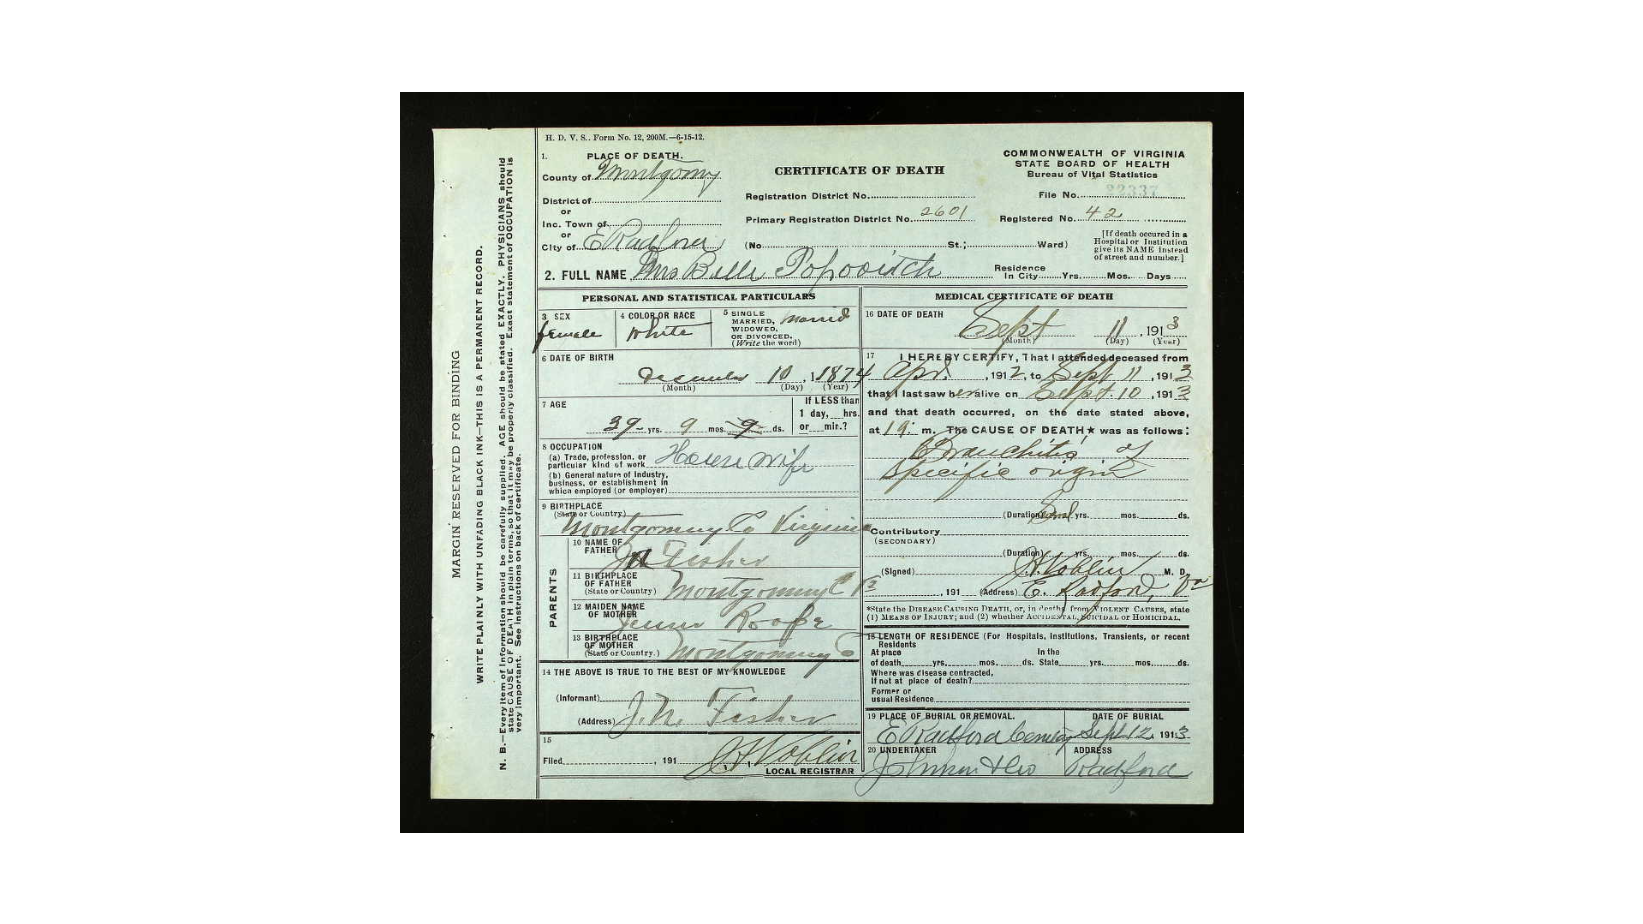 H. D. V. S.. Form No. 12, 200M.—6-15-12.
1. PLACE OF DEATH.
County of Montgomy
District of
or
Inc. Town of
or
City of E Radford
CERTIFICATE OF DEATH
Registration District No.
Primary Registration District No. 2601
(No St.; Ward)
COMMONWEALTH OF VIRGINIA
STATE BOARD OF HEALTH
Bureau of Vital Statistics
File No. 22337
Registered No. 42
[If death occured in a
Hospital or Institution
give its NAME instead
of street and number.]
2. FULL NAME Mrs Belle Popovitch
Residence
In City Yrs. Mos. Days
PERSONAL AND STATISTICAL PARTICULARS
3 SEX
female
4 COLOR OR RACE
White
5 SINGLE
MARRIED, Married
WIDOWED,
OR DIVORCED.
(Write the word)
6 DATE OF BIRTH
December 10, 1874
(Month) (Day) (Year)
7 AGE
39 yrs. 9 mos. 9 ds.
If LESS than
1 day, hrs.
or min.?
8 OCCUPATION
(a) Trade, profession, or
particular kind of work House wife
(b) General nature of industry,
business, or establishment in
which employed (or employer)
9 BIRTHPLACE
(State or Country)
Montgomery Co Virginia
PARENTS
10 NAME OF
FATHER J N Fisher
11 BIRTHPLACE
OF FATHER
(State or Country) Montgomery C
12 MAIDEN NAME
OF MOTHER
13 BIRTHPLACE
OF MOTHER
(State or Country.) Montgomery C
14 THE ABOVE IS TRUE TO THE BEST OF MY KNOWLEDGE
(Informant)
(Address) J. N. Fisher
15
Filed , 191
LOCAL REGISTRAR
MEDICAL CERTIFICATE OF DEATH
16 DATE OF DEATH
Sept 11, 1913
(Month) (Day) (Year)
17 I HEREBY CERTIFY, That I attended deceased from
Apr. , 1912, to Sept 11, 1913
that I last saw her alive on Sept. 10, 1913
and that death occurred, on the date stated above,
at m. The CAUSE OF DEATH★ was as follows:
Bronchitis of
Specific origin
(Duration) yrs. mos. ds.
Contributory
(SECONDARY)
(Duration) yrs. mos. ds.
(Signed) M. D.
, 191 (Address) E. Radford, Va
*State the DISEASE CAUSING DEATH, or, in deaths from VIOLENT CAUSES, state
(1) MEANS OF INJURY; and (2) whether ACCIDENTAL, SUICIDAL or HOMICIDAL.
18 LENGTH OF RESIDENCE (For Hospitals, Institutions, Transients, or recent
Residents
At place In the
of death yrs. mos. ds. State yrs. mos. ds.
Where was disease contracted,
If not at place of death?
Former or
usual Residence
19 PLACE OF BURIAL OR REMOVAL. DATE OF BURIAL
E Radford Sept 12, 1913
20 UNDERTAKER ADDRESS
Radford
MARGIN RESERVED FOR BINDING
WRITE PLAINLY WITH UNFADING BLACK INK—THIS IS A PERMANENT RECORD.
N. B.—Every item of information should be carefully supplied. AGE should be stated EXACTLY. PHYSICIANS should
state CAUSE OF DEATH in plain terms, so that it may be properly classified. Exact statement of OCCUPATION is
very important. See instructions on back of certificate.